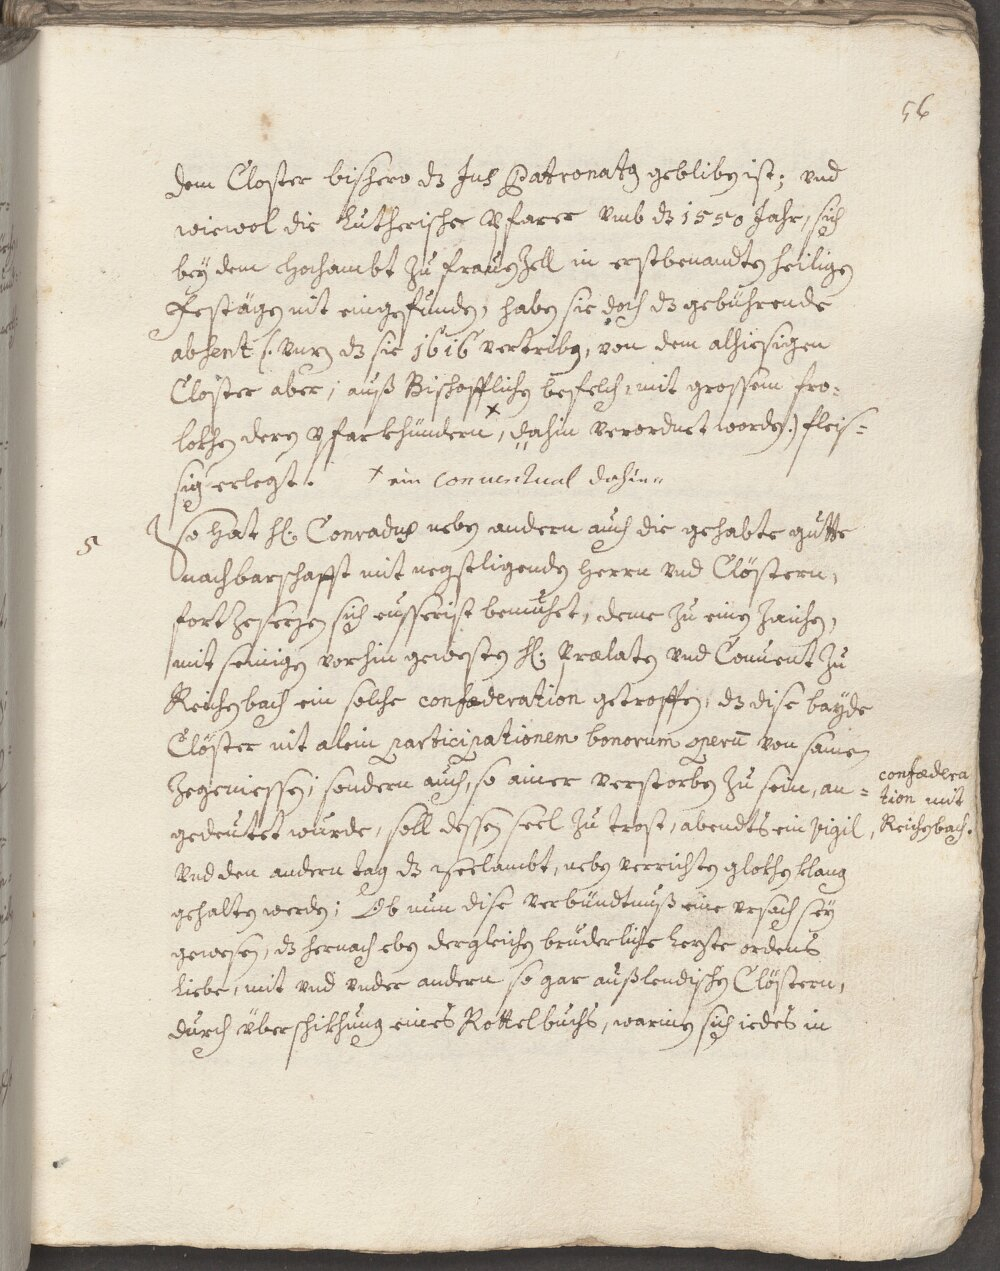 56
dem Closter bishero dz Jus Patronatus gebliben ist; vnd
wiewol die Lutherische Pfarer vmb dz 1550 Jahr, sich
bey dem Hochambt zu frauenZell in erstbenandten heiligen
Festägen nit eingefunden, haben sie doch dz gebührende
absent (: dz sie 1616 vertriben, von dem alhiesigen
Closter aber, auß Bischofflichen befelch, mit grossem fro-
lokhen deren Pfarkhündern, × dahin verordnet worden.) fleis-
sig erlegt. × ein conuentual dahin
5 So hat H. Conradus neben andern auch die gehabte gutte
nachbarschafft mit negstligenden Herrn vnd Clöstern,
fortzesezen sich eusserist bemühet, deme zu einen Zaichen,
mit seinigen vorhin gewesten H. Prælaten vnd Conuent zu
Reichenbach ein solche confæderation getroffen, dz dise bayde
Clöster nit alein participationem bonorum operū von samen
zegeniessen, sondern auch, so ainer verstorben zu sein, an-
gedeutet wurde, soll dessen seel zu trost, abendts ein vigil,
confædera
tion mit
Reichenbach.
vnd den andern tag dz Seelambt, neben verrichten glokhen klang
gehalten werden; Ob nun dise verbündtnuß eine vrsach sey
gewesen, dz hernach eben dergleichen brüderliche ordens
liebe, mit vnd vnder andern so gar außlendischen Clöstern,
durch überschikhung eines Rottelbuchs, warinen sich iedes in